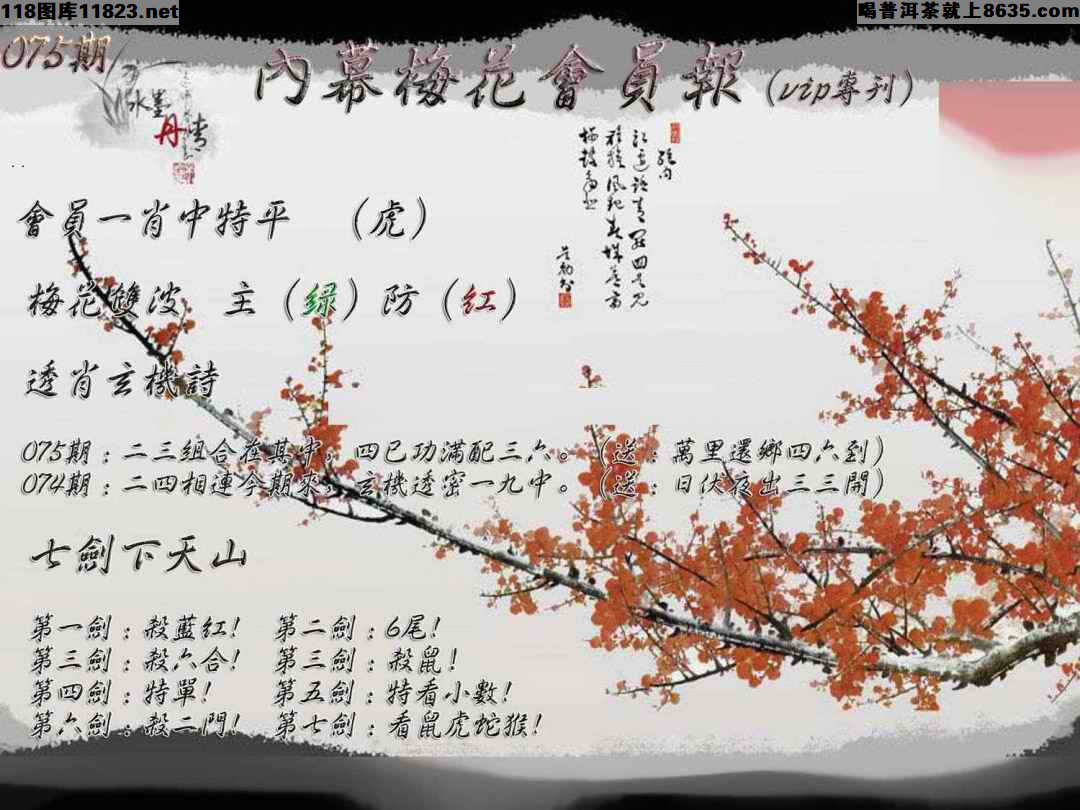 118图库11823.net
喝普洱茶就上8635.com
075期
內幕梅花會員報(vip專刊)
水墨
丹青
會員一肖中特平 （虎）
梅花雙波 主（绿）防（红）
透肖玄機詩
075期：二三組合在其中，四已功滿配三六。（送：萬里還鄉四六到）
074期：二四相連今期來，玄機透密一九中。（送：日伏夜出三三開）
七劍下天山
第一劍：殺藍红! 第二劍：6尾!
第三劍：殺六合! 第三劍：殺鼠!
第四劍：特單! 第五劍：特看小數!
第六劍：殺二門! 第七劍：看鼠虎蛇猴!